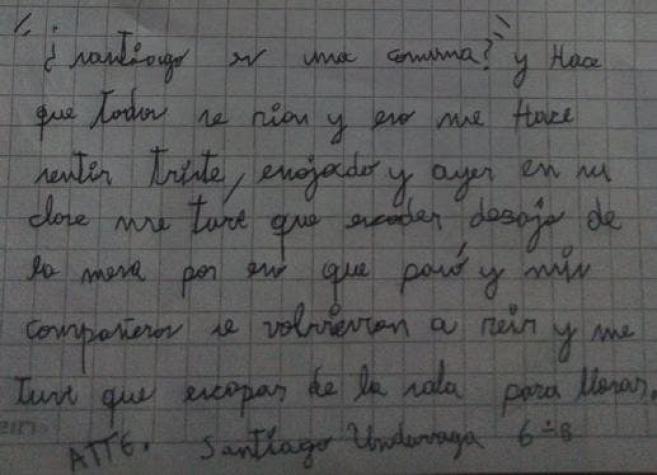 "¿santiago es una comuna?" y Hace
que todos se rían y eso me Hace
sentir triste, enojado y ayer en su
clase me tuve que escoder desajo de
la mesa por eso que pasó y mis
compañeros se volvieron a reir y me
tuve que escapar de la sala para llorar.
ATTE. Santiago Undurraga 6-B